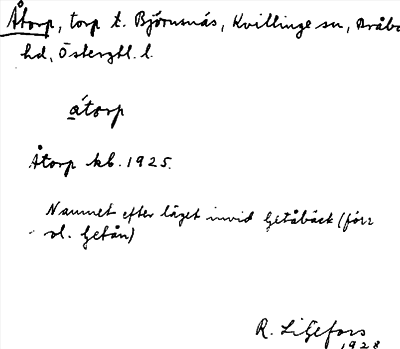 Åtorp, torp t. Björnsnäs, Kvillinge sn, Bråbo
hd, Östergtl. l.
åtorp
Åtorp kb. 1925.
Namnet efter läget invid Getåbäck (förr
ol. Getån)
R. Liljefors
1928